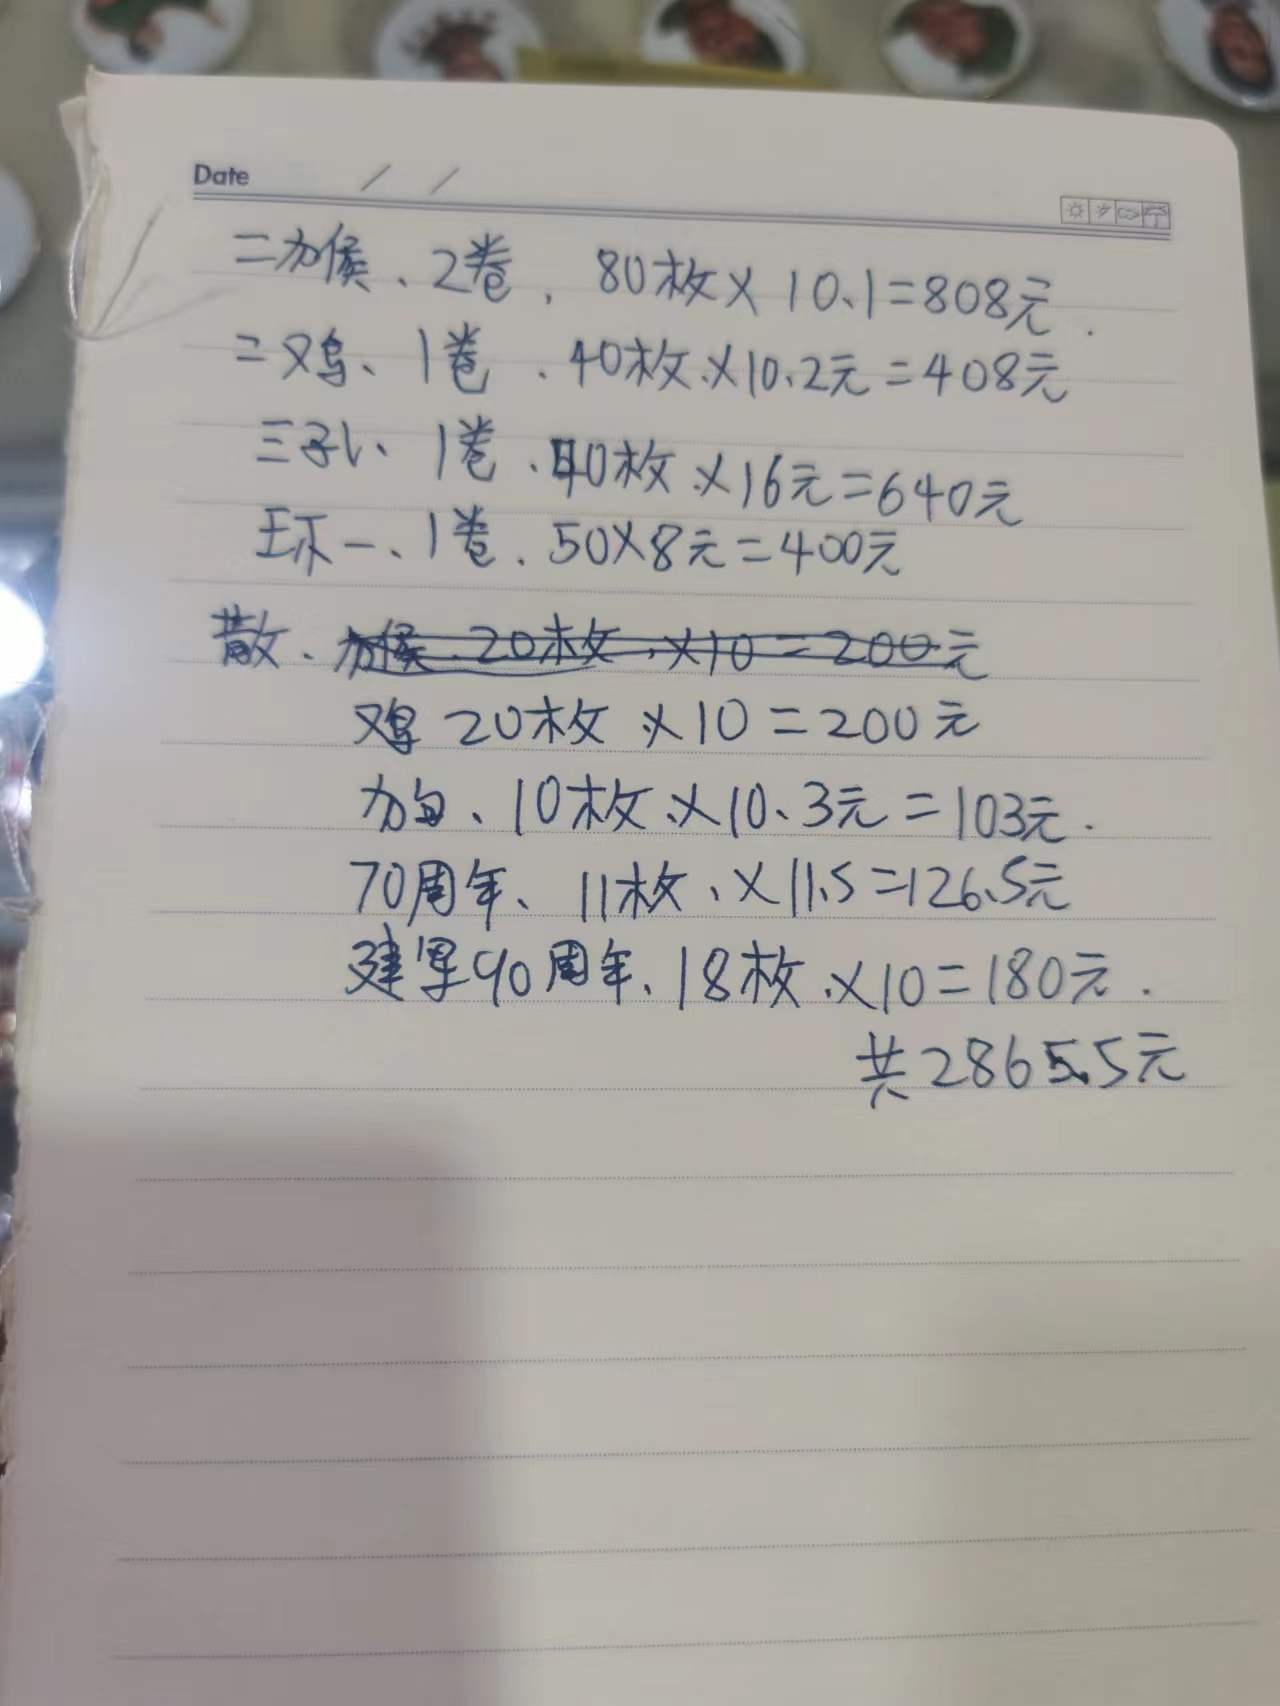 Date / /
二犭侯、2卷, 80枚×10、1=808元.
二鸡、1卷. 40枚、×10、2元=408元
三孔、1卷. 40枚.×16元=640元
环一、1卷. 50×8元=400元
散. 犭侯. 20枚.×10=200元
鸡20枚×10=200元
狗、10枚、×10、3元=103元.
70周年、11枚、×11.5=126.5元
建军90周年、18枚.×10=180元.
共2865.5元